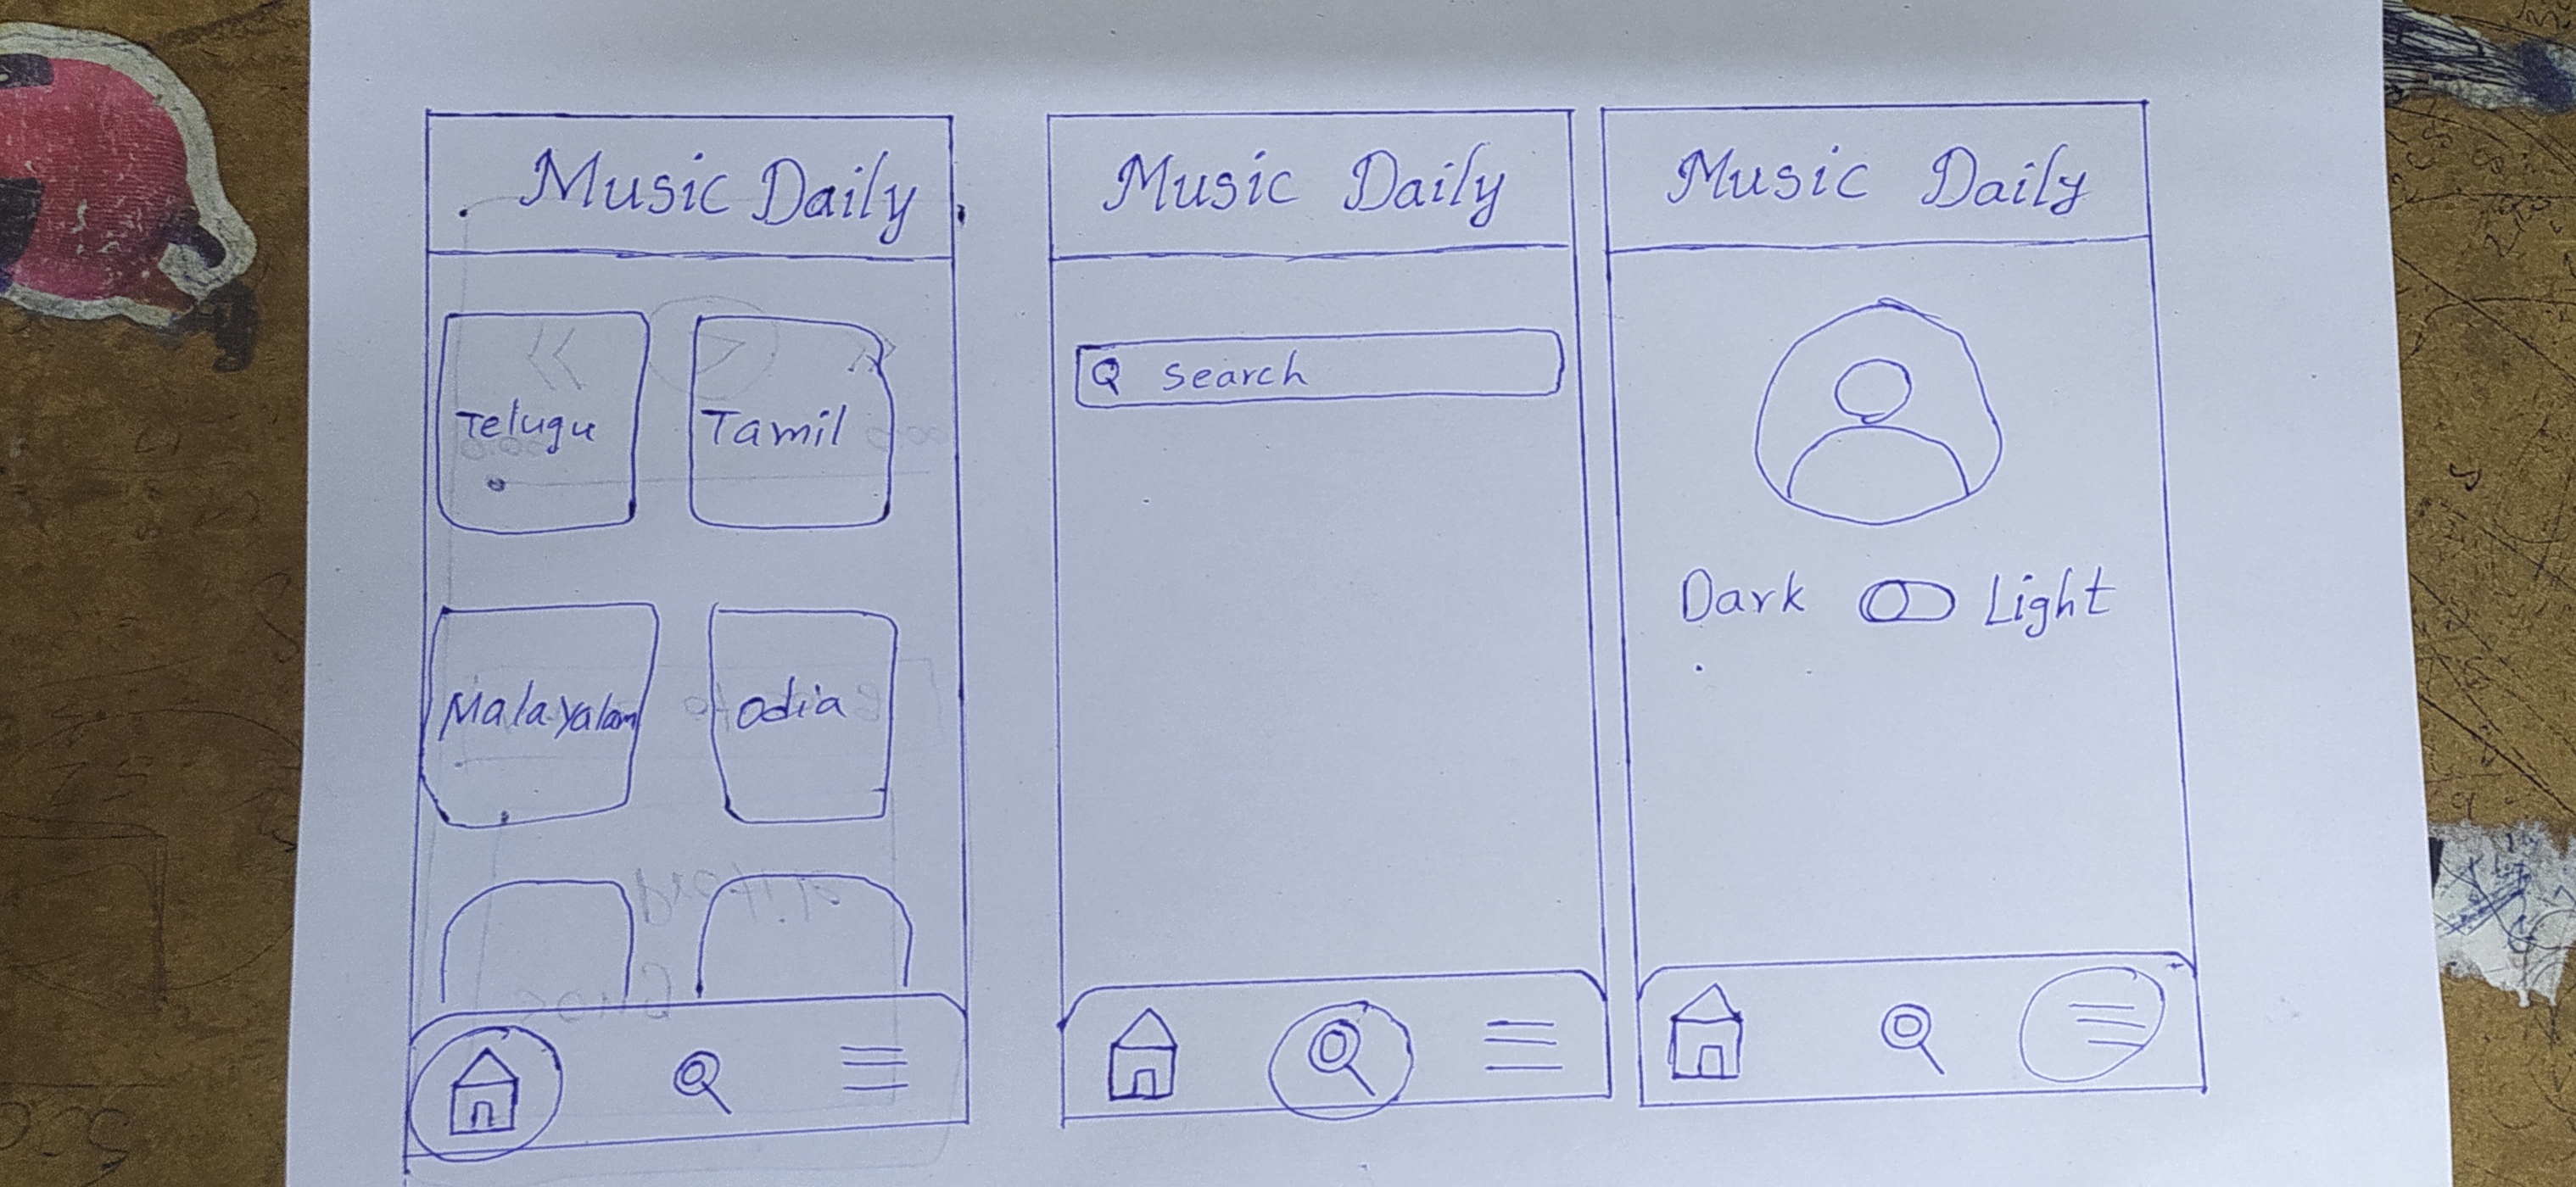 Music Daily
Telugu
Tamil
Malayalam
Odia
Music Daily
Search
Music Daily
Dark
Light